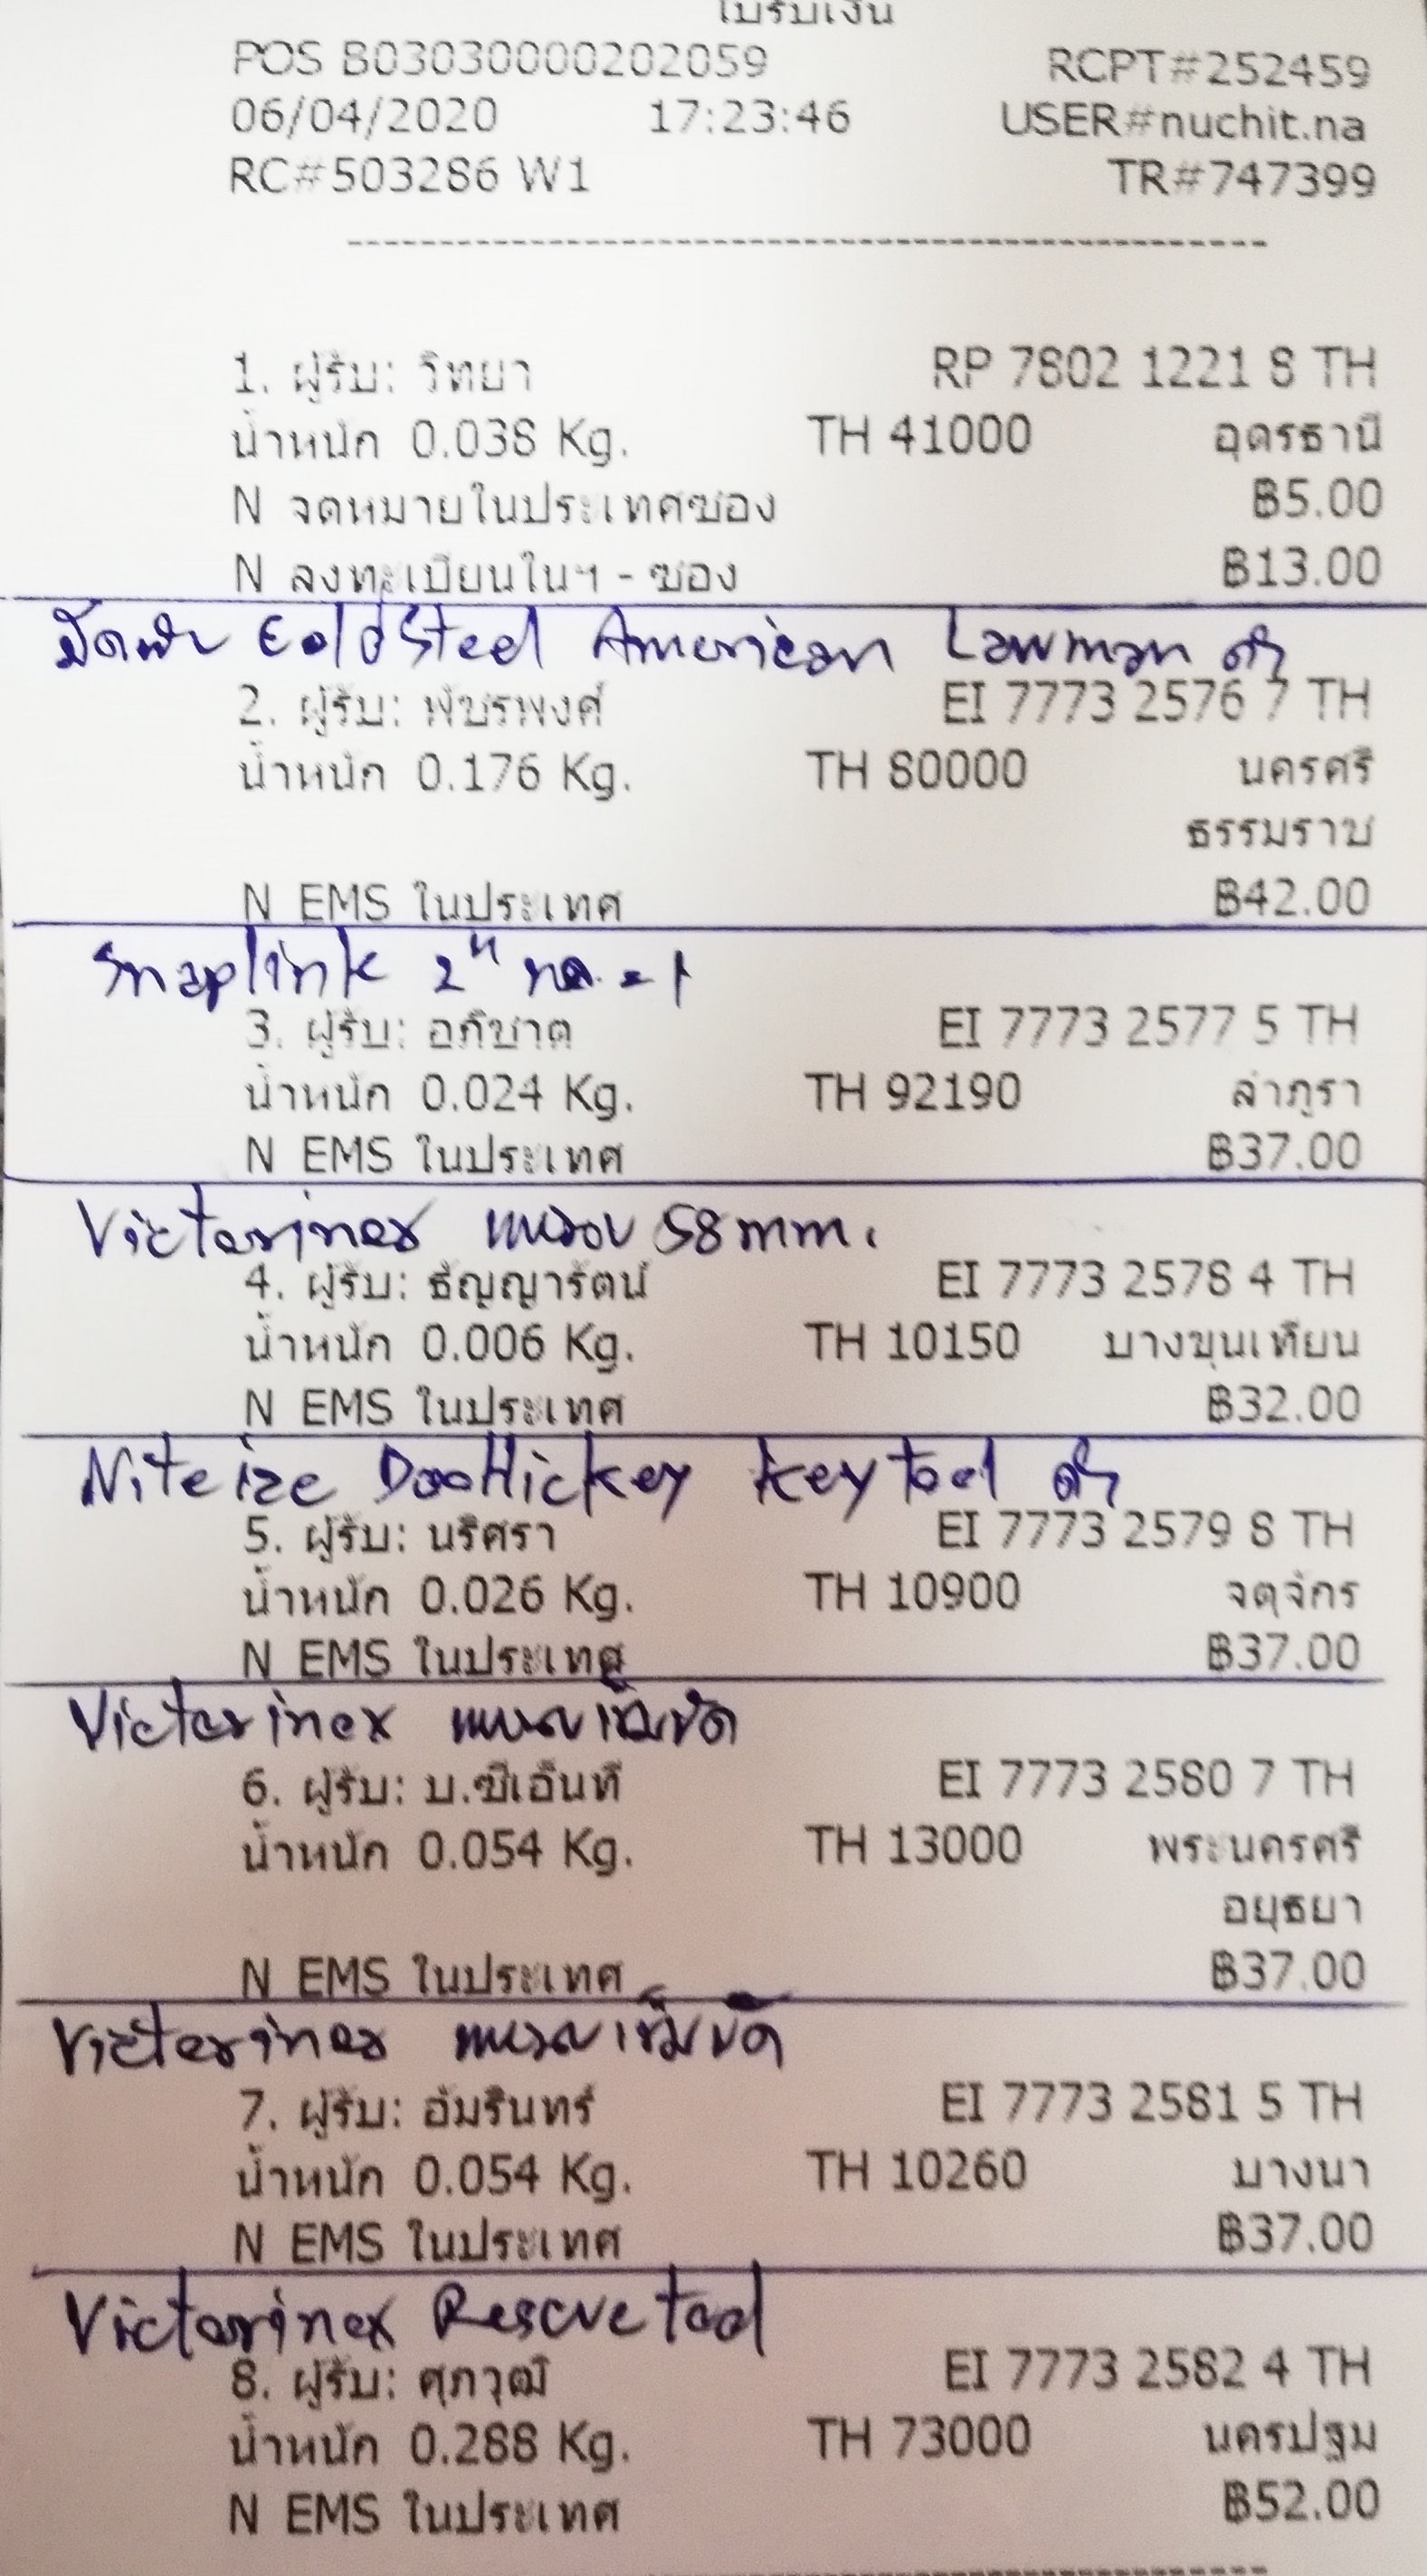 ใบรับเงิน
POS B03030000202059 RCPT#252459
06/04/2020 17:23:46 USER#nuchit.na
RC#503286 W1 TR#747399
1. ผู้รับ: วิทยา RP 7802 1221 8 TH
น้ำหนัก 0.038 Kg. TH 41000 อุดรธานี
N จดหมายในประเทศซอง ฿5.00
N ลงทะเบียนในฯ - ซอง ฿13.00
มีดพับ Cold Steel American Lawman ดำ
2. ผู้รับ: พัชรพงศ์ EI 7773 2576 7 TH
น้ำหนัก 0.176 Kg. TH 80000 นครศรี
ธรรมราช
N EMS ในประเทศ ฿42.00
Snaplink 2"
3. ผู้รับ: อภิชาต EI 7773 2577 5 TH
น้ำหนัก 0.024 Kg. TH 92190 ลำภูรา
N EMS ในประเทศ ฿37.00
Victorinox แหนบ 58 mm.
4. ผู้รับ: ธัญญารัตน์ EI 7773 2578 4 TH
น้ำหนัก 0.006 Kg. TH 10150 บางขุนเทียน
N EMS ในประเทศ ฿32.00
Niteize DooHickey keytool ดำ
5. ผู้รับ: นริศรา EI 7773 2579 8 TH
น้ำหนัก 0.026 Kg. TH 10900 จตุจักร
N EMS ในประเทศ ฿37.00
Victorinox แหวนเข็มขัด
6. ผู้รับ: บ.ซีเอ็นที EI 7773 2580 7 TH
น้ำหนัก 0.054 Kg. TH 13000 พระนครศรี
อยุธยา
N EMS ในประเทศ ฿37.00
Victorinox แหวนเข็มขัด
7. ผู้รับ: อัมรินทร์ EI 7773 2581 5 TH
น้ำหนัก 0.054 Kg. TH 10260 บางนา
N EMS ในประเทศ ฿37.00
Victorinox Rescue tool
8. ผู้รับ: ศุภวุฒิ EI 7773 2582 4 TH
น้ำหนัก 0.288 Kg. TH 73000 นครปฐม
N EMS ในประเทศ ฿52.00